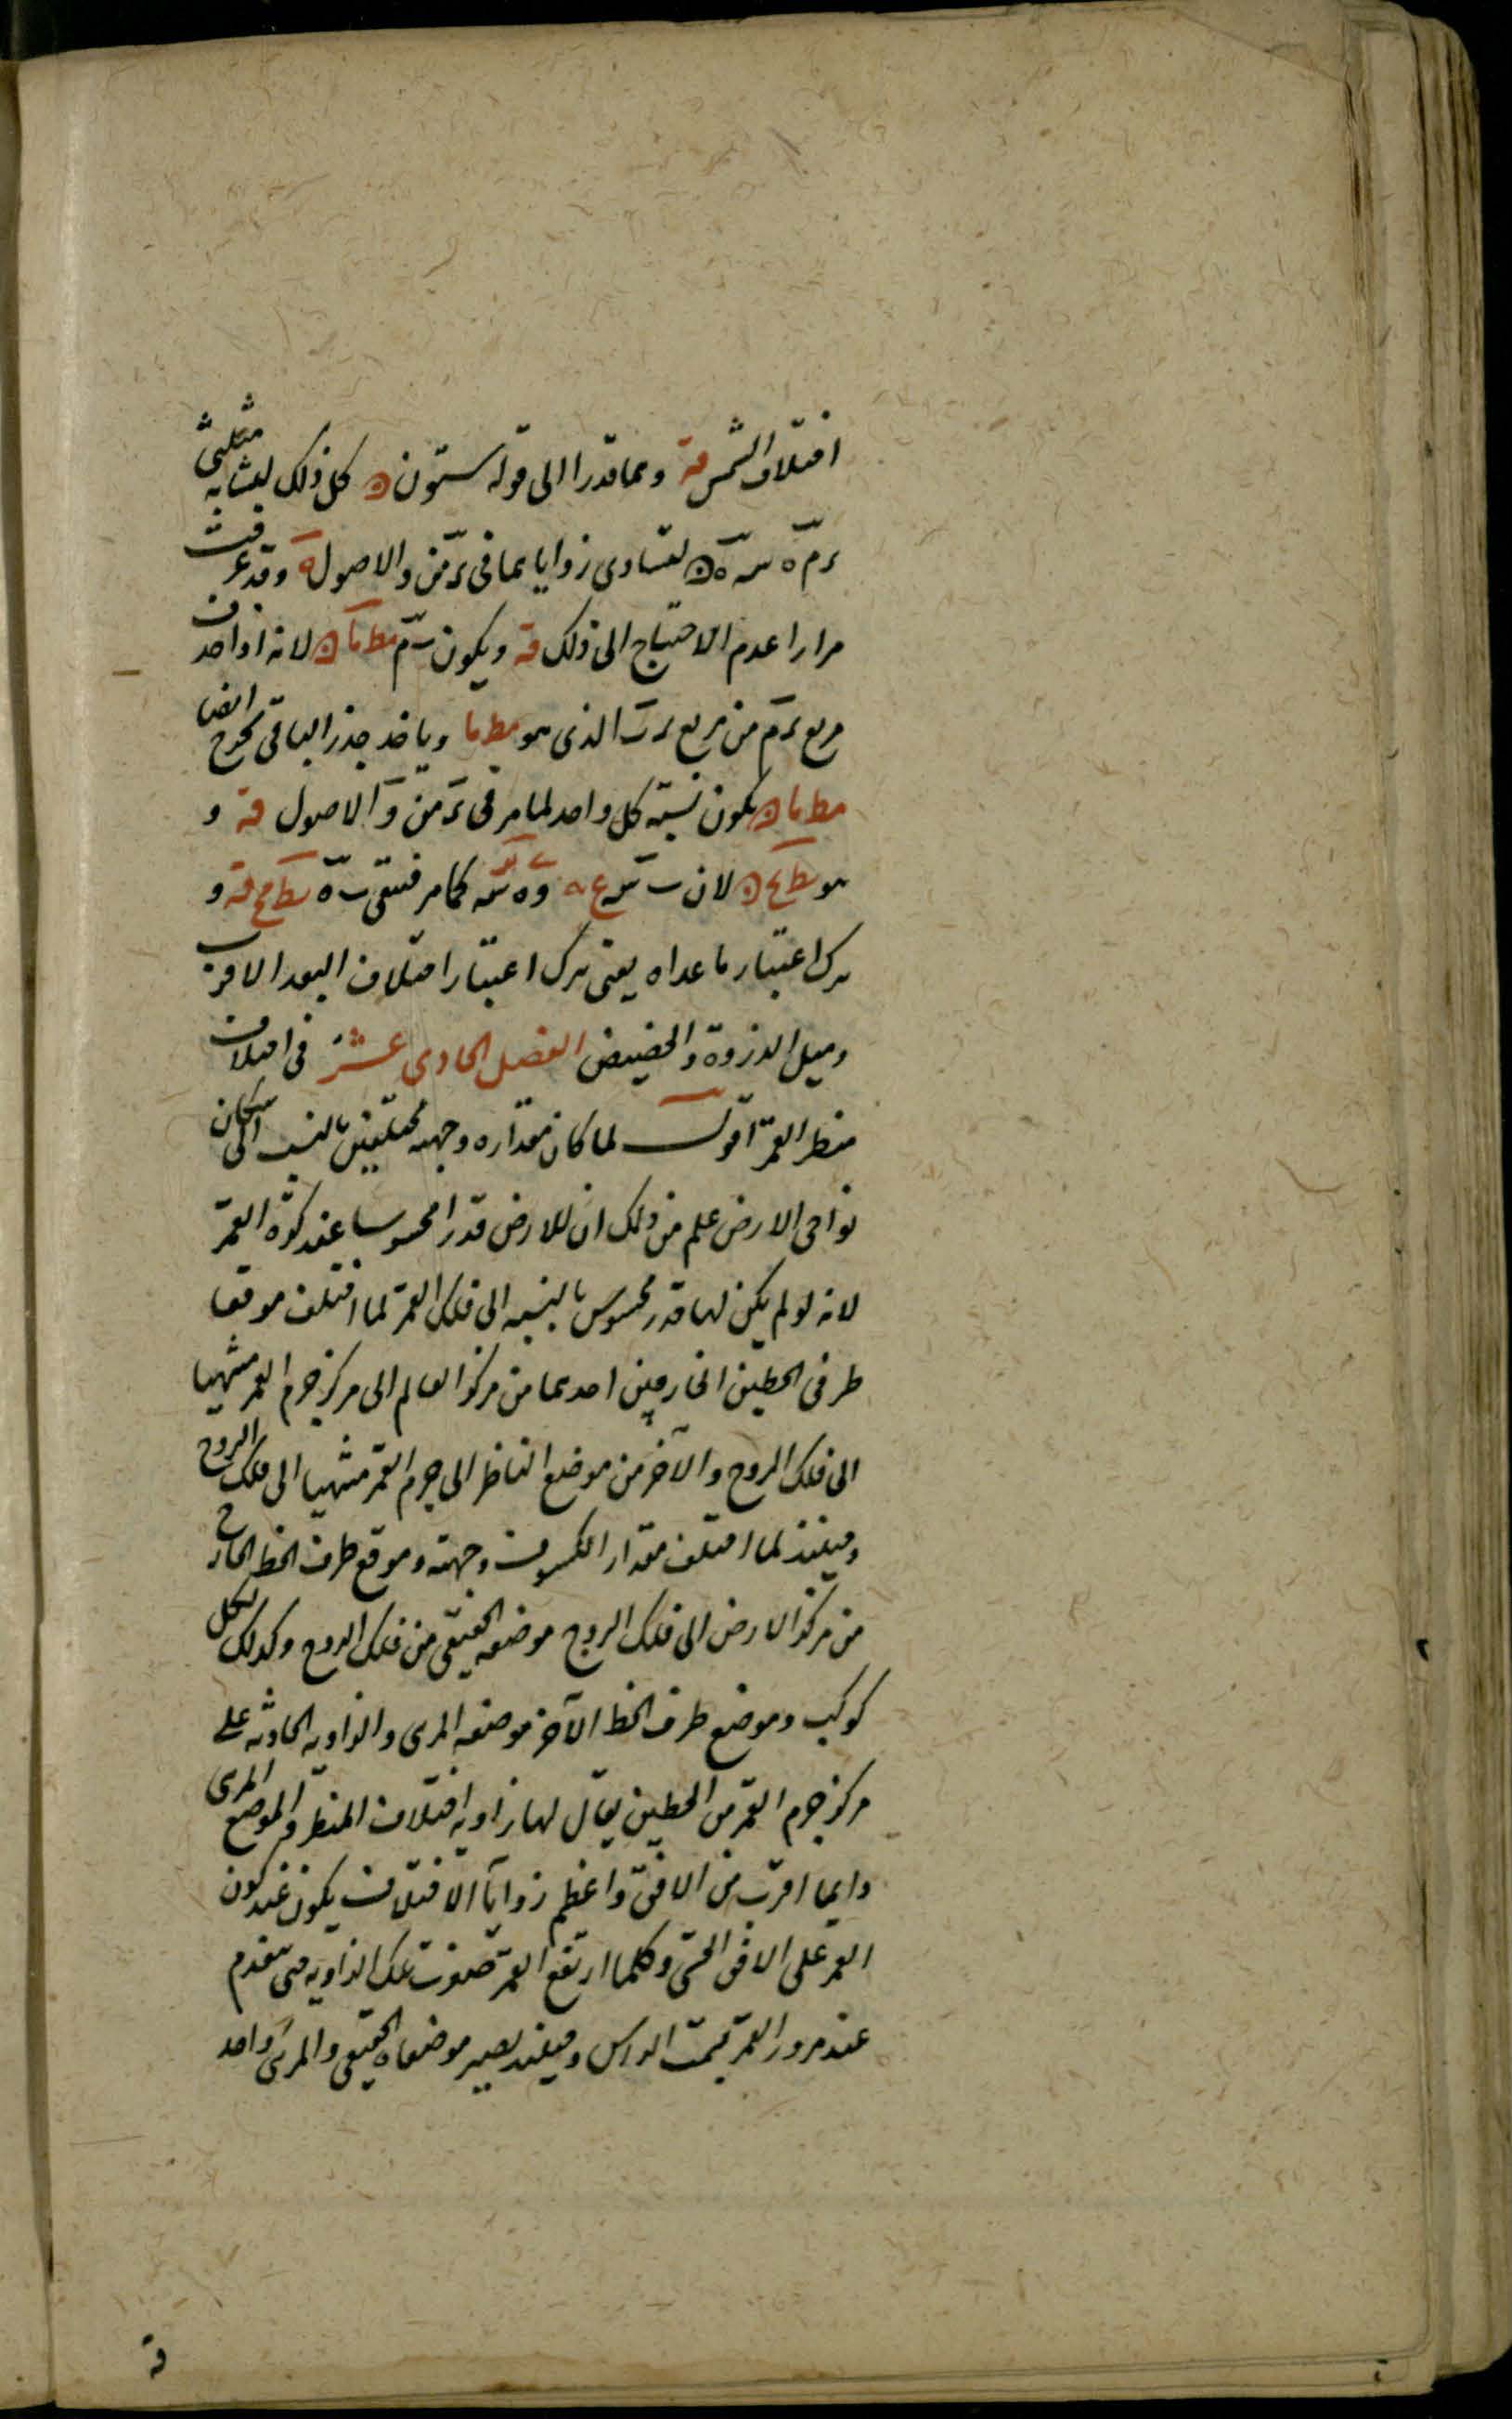 اختلاف الشمس قه وهما قدرا الى قوله ستون ه كل ذلك لتشابه مثلثى
لتساوى زوايا هما فى والاصول وقد عرفت
مرارا عدم الاحتياج الى ذلك قه ويكون مط ما ه لانه اذا حذف
مربع من مربع الذى هو مط ما وياخذ جذر الباقى يخرج ايضا
مط ما ه يكون نسبة كل واحد لما مر فى من والاصول قه و
هو لان كما مر فيبقى قه و
ترك اعتبار ما عداه يعنى ترك اعتبار اختلاف البعد الاقرب
وميل الذروة والحضيض الفصل الحادى عشر فى اختلاف
منظر القمر اقول لما كان مقداره وجهته مختلفين بالنسبة الى سكان
نواحى الارض علم من ذلك ان للارض قدرا محسوسا عند كرة القمر
لانه لو لم يكن لها قدر محسوس بالنسبه الى فلك القمر لما اختلف موقعا
طرفى الخطين الخارجين احدهما من مركز العالم الى مركز جرم القمر منتهيا
الى فلك البروج والآخر من موضع الناظر الى جرم القمر منتهيا الى فلك البروج
وحينئذ لما اختلف مقدار الكسوف وجهته وموقع طرف الخط الخارج
من مركز الارض الى فلك البروج موضعه الحقيقى من فلك البروج وكذلك لكل
كوكب وموضع طرف الخط الآخر موضعه المرى والزاويه الحادثه على
مركز جرم القمر من الخطين يقال لها زاويه اختلاف المنظر والموضع المرى
دايما اقرب من الافق واعظم زوايا الاختلاف يكون عند كون
القمر على الافق الحسى وكلما ارتفع القمر صغرت تلك الزاويه حتى تنعدم
عند مرور القمر بسمت الراس وحينئذ يصير موضعاه الحقيقى والمرئى واحد
قه